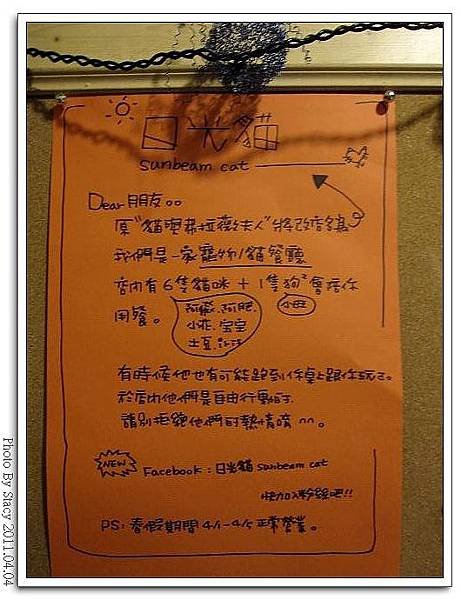 日光貓
sunbeam cat
Dear 朋友。。
原"貓與弗拉薇夫人"將改店名為
我們是一家寵物/貓餐廳
店內有6隻貓咪 + 1隻狗²會陪你
用餐。
阿肥.
小花.宝宝
土豆.
小旺
有時候他也有可能跑到你桌上跟你玩。
於店內他們是自由行動的
請別拒絕他們的熱情唷 ^^。
NEW
Facebook : 日光貓 sunbeam cat
快加入粉絲吧!!
PS: 春假期間 4/1-4/5 正常營業。
Photo By Stacy 2011.04.04